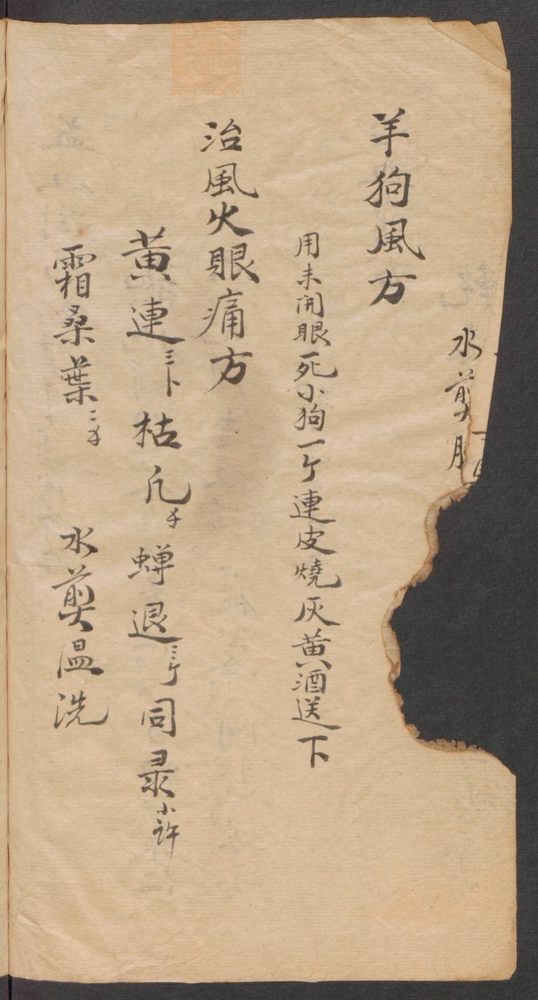 水剪
羊狗風方
用未開眼死小狗一个連皮燒灰黄酒送下
治風火眼痛方
黄連三卜枯凡才蟬退三个同录小許
霜桑葉二才 水剪温洗